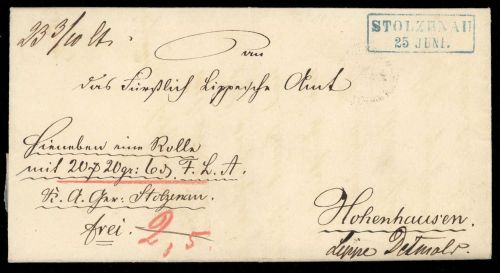 23 3/10 lt.
STOLZENAU
25 JUNI.
An
das Fürstlich Lippesche Amt
Hieneben eine Rolle
mit 20 20gr: 6 F. L. A.
K. A. Ger: Stolzenau.
frei.
2,5.
Hohenhausen.
Lippe Detmold.